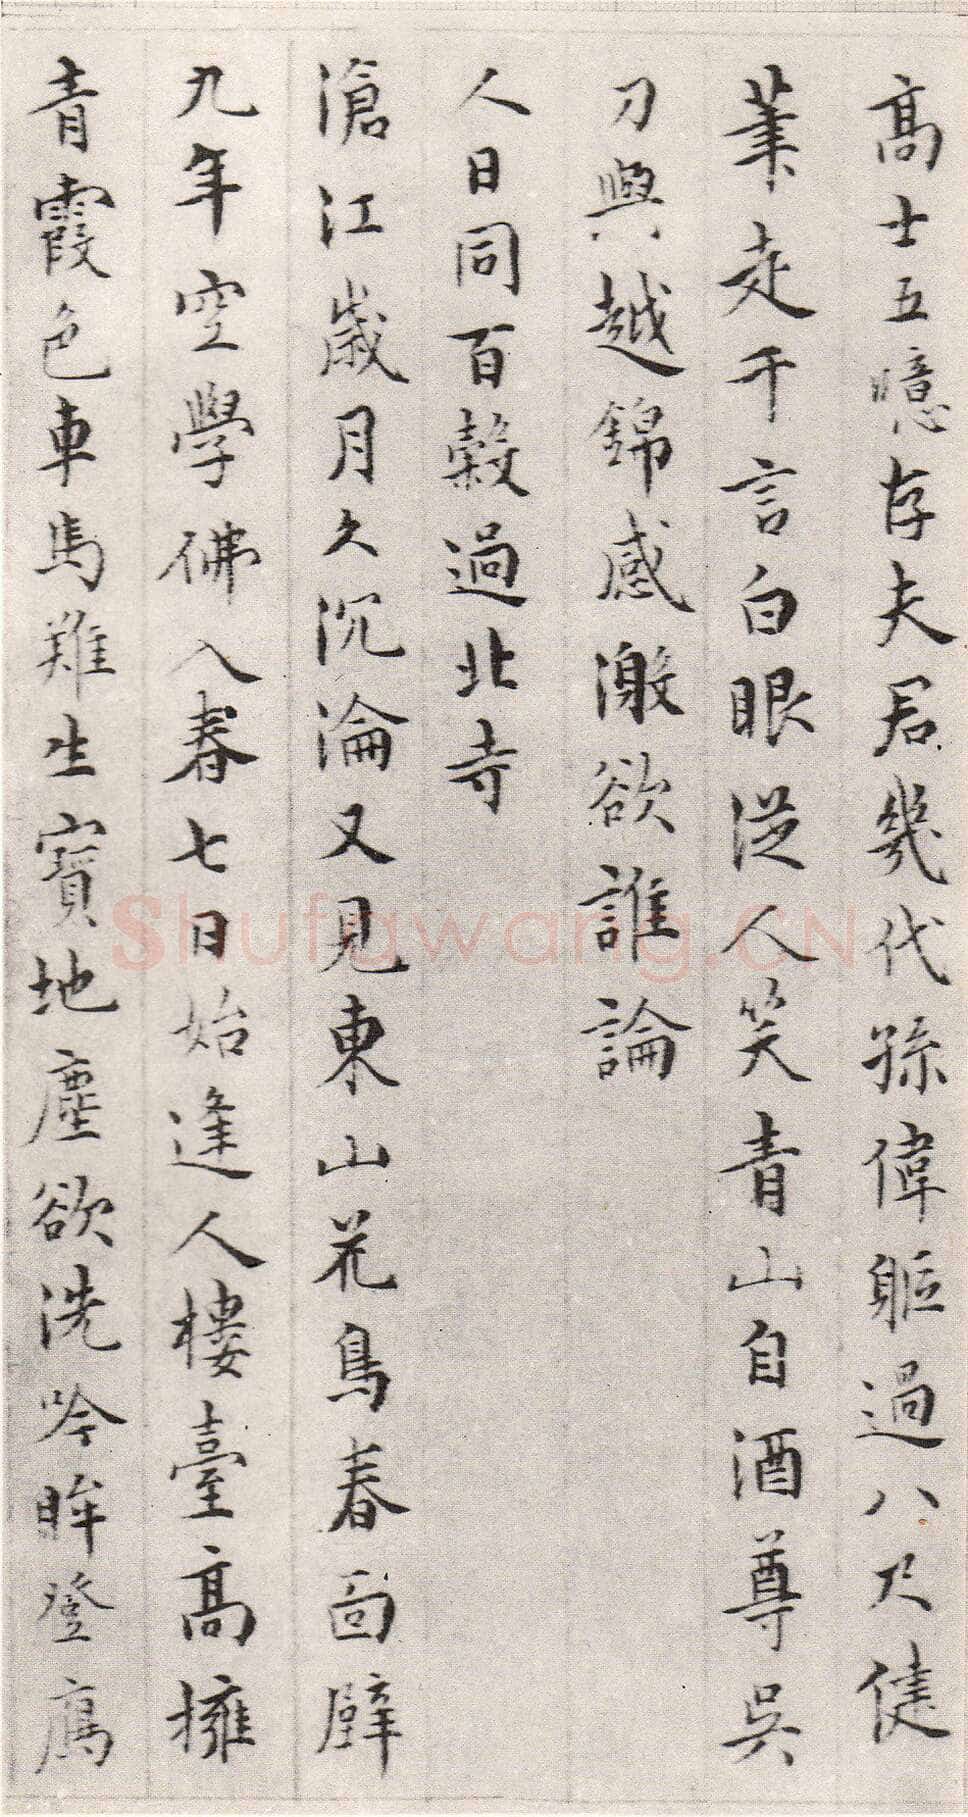 高士五噫存夫君幾代孫偉軀過八尺健
筆走千言白眼從人笑青山自酒尊吳
刀與越錦感激欲誰論
人日同百穀過北寺
滄江歲月久沉淪又見東山花鳥春面壁
九年空學佛入春七日始逢人樓臺高擁
青霞色車馬難生寶地塵欲洗吟眸登廌
Shufawang.CN